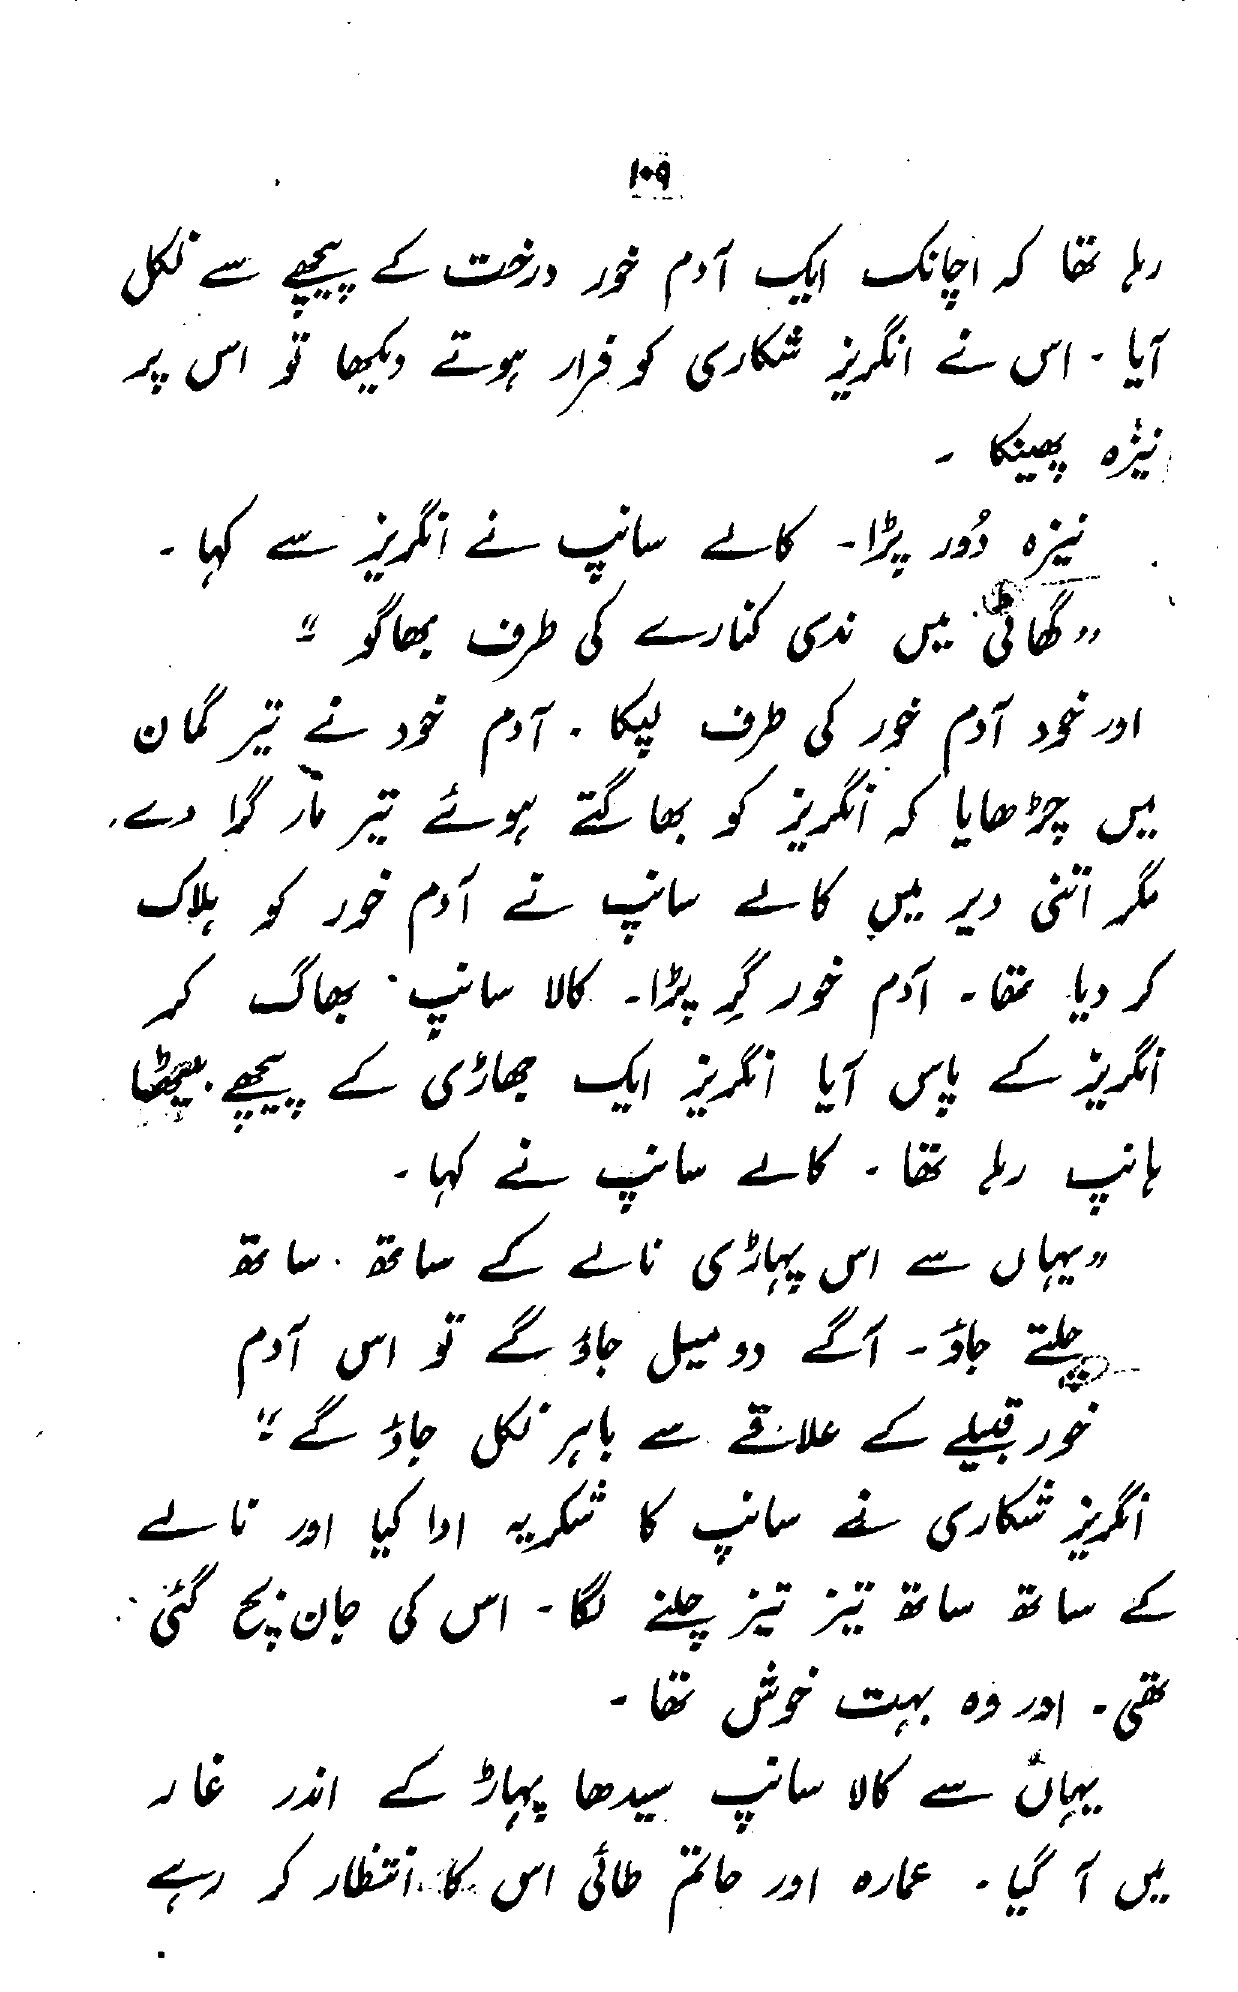 ۱۰۹
رہا تھا کہ اچانک ایک آدم خور درخت کے پیچھے سے نکل
آیا ۔ اس نے انگریز شکاری کو فرار ہوتے دیکھا تو اس پر
نیزہ پھینکا ۔
نیزہ دُور پڑا ۔ کالے سانپ نے انگریز سے کہا ۔
”گھاٹی میں ندی کنارے کی طرف بھاگو “
اور خود آدم خور کی طرف لپکا ۔ آدم خود نے تیر کمان
میں چڑھایا کہ انگریز کو بھاگتے ہوئے تیر مار گرا دے ۔
مگر اتنی دیر میں کالے سانپ نے آدم خور کو ہلاک
کر دیا تھا ۔ آدم خور گِر پڑا ۔ کالا سانپ بھاگ کر
انگریز کے پاس آیا انگریز ایک جھاڑی کے پیچھے بیٹھا
ہانپ رہا تھا ۔ کالے سانپ نے کہا ۔
”یہاں سے اس پہاڑی نالے کے ساتھ ساتھ
چلتے جاؤ ۔ آگے دو میل جاؤ گے تو اس آدم
خور قبیلے کے علاقے سے باہر نکل جاؤ گے “
انگریز شکاری نے سانپ کا شکریہ ادا کیا اور نالے
کے ساتھ ساتھ تیز تیز چلنے لگا ۔ اس کی جان بچ گئی
تھی ۔ اور وہ بہت خوش تھا ۔
یہاں سے کالا سانپ سیدھا پہاڑ کے اندر غار
میں آ گیا ۔ عمارہ اور حاتم طائی اس کا انتظار کر رہے